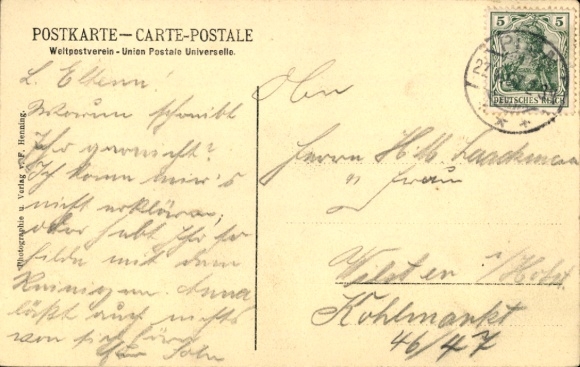 POSTKARTE – CARTE-POSTALE
Weltpostverein – Union Postale Universelle.
Photographie u. Verlag v. F. Henning.
5 5
DEUTSCHES REICH
L. Eltern!
Warum schreibt
Ihr garnicht?
Ich kann mir's
nicht erklären,
oder habt Ihr so
mit dem
Reinigen. Anna
läßt auch nichts
von sich hören
Euer Sohn
An
Herrn H.
" Frau
Wilster i/Holst.
Kohlmarkt
46/47